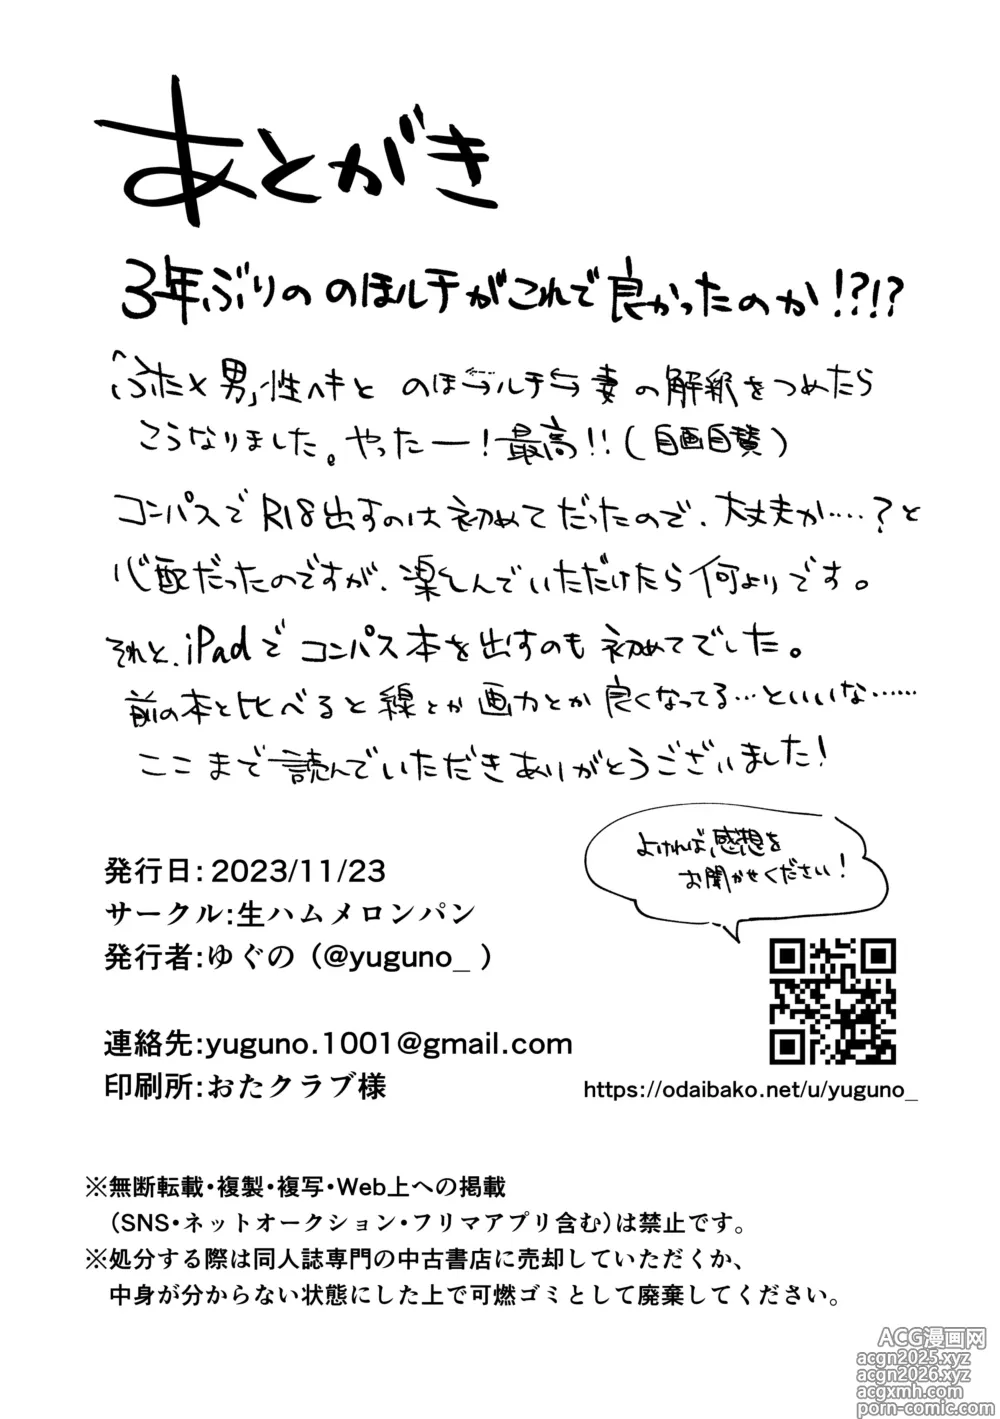 あとがき
3年ぶりの のほルチがこれで良かったのか!?!?
「ふた×男」性ヘキと のほ⇆ルチ⇆妻の解釈をつめたら
こうなりました。やったー!最高!!(自画自賛)
コンパスでR18出すのは初めてだったので、大丈夫か……?と
心配だったのですが、楽しんでいただけたら何よりです。
それと、iPadでコンパス本を出すのも初めてでした。
前の本と比べると線とか画力とか良くなってる…といいな……
ここまで読んでいただきありがとうございました!
よければ、感想を
お聞かせください!
発行日:2023/11/23
サークル:生ハムメロンパン
発行者:ゆぐの（@yuguno_ ）
連絡先:yuguno.1001@gmail.com
印刷所:おたクラブ様
https://odaibako.net/u/yuguno_
※無断転載・複製・複写・Web上への掲載
（SNS・ネットオークション・フリマアプリ含む）は禁止です。
※処分する際は同人誌専門の中古書店に売却していただくか、
中身が分からない状態にした上で可燃ゴミとして廃棄してください。
ACG漫画网
acgn2025.xyz
acgn2026.xyz
acgxmh.com
porn-comic.com